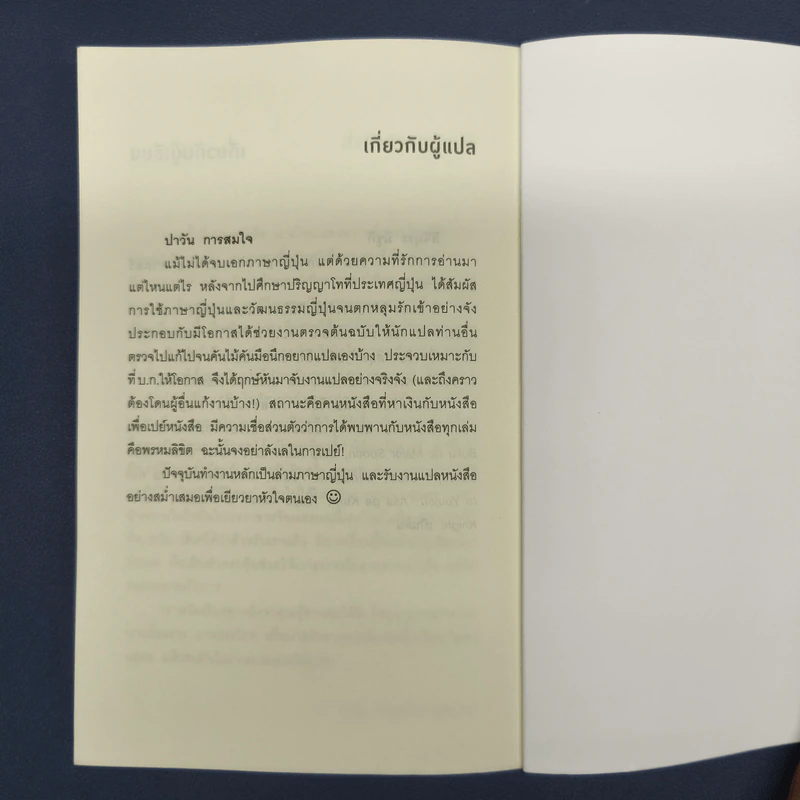 เกี่ยวกับผู้แปล
ปาวัน การสมใจ
แม้ไม่ได้จบเอกภาษาญี่ปุ่น แต่ด้วยความที่รักการอ่านมา
แต่ไหนแต่ไร หลังจากไปศึกษาปริญญาโทที่ประเทศญี่ปุ่น ได้สัมผัส
การใช้ภาษาญี่ปุ่นและวัฒนธรรมญี่ปุ่นจนตกหลุมรักเข้าอย่างจัง
ประกอบกับมีโอกาสได้ช่วยงานตรวจต้นฉบับให้นักแปลท่านอื่น
ตรวจไปแก้ไปจนคันไม้คันมือนึกอยากแปลเองบ้าง ประจวบเหมาะกับ
ที่ บ.ก.ให้โอกาส จึงได้ฤกษ์หันมาจับงานแปลอย่างจริงจัง (และถึงคราว
ต้องโดนผู้อื่นแก้งานบ้าง!) สถานะคือคนหนังสือที่หาเงินกับหนังสือ
เพื่อเปย์หนังสือ มีความเชื่อส่วนตัวว่าการได้พบพานกับหนังสือทุกเล่ม
คือพรหมลิขิต ฉะนั้นจงอย่าลังเลในการเปย์!
ปัจจุบันทำงานหลักเป็นล่ามภาษาญี่ปุ่น และรับงานแปลหนังสือ
อย่างสม่ำเสมอเพื่อเยียวยาหัวใจตนเอง ☺